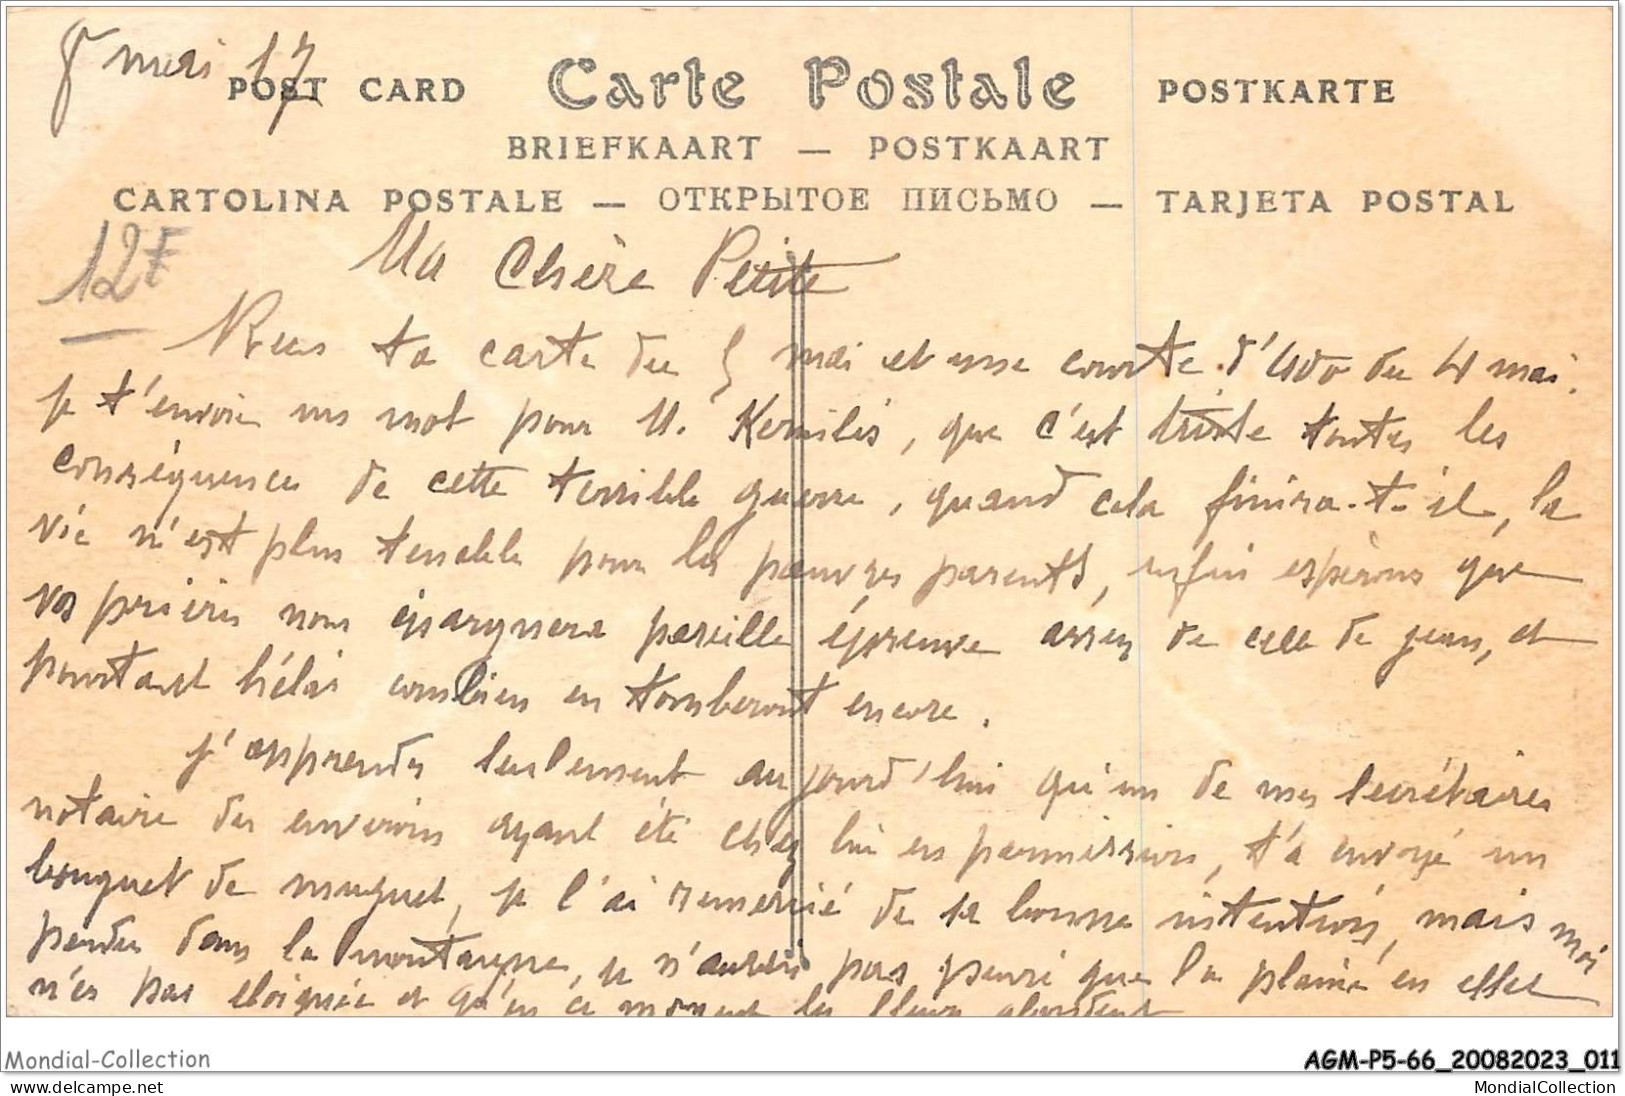 8 mai 17
POST CARD Carte Postale POSTKARTE
BRIEFKAART — POSTKAART
CARTOLINA POSTALE — ОТКРЫТОЕ ПИСЬМО — TARJETA POSTAL
12F
Ma Chère Petite
Reçu ta carte du 5 mai et une courte d'Udo du 4 mai.
je t'envoie un mot pour M. Kernilis, que c'est triste toutes les
conséquences de cette terrible guerre, quand cela finira-t-il, la
vie n'est plus tenable pour les pauvres parents, enfin espérons que
vos prières nous épargnera pareille épreuve assez de celle de jean, et
pourtant hélas combien en tomberont encore.
j'apprends seulement aujourd'hui qu'un de mes secrétaires
notaire des environs ayant été chez lui en permission, t'a envoyé un
bouquet de muguet, je l'ai remercié de sa bonne intention, mais moi
perdu dans la montagne, je n'aurais pas pensé que la plaine en effet
n'es pas éloignée et qu'en ce moment les fleurs abondent
Mondial-Collection
AGM-P5-66_20082023_011
www.delcampe.net
MondialCollection